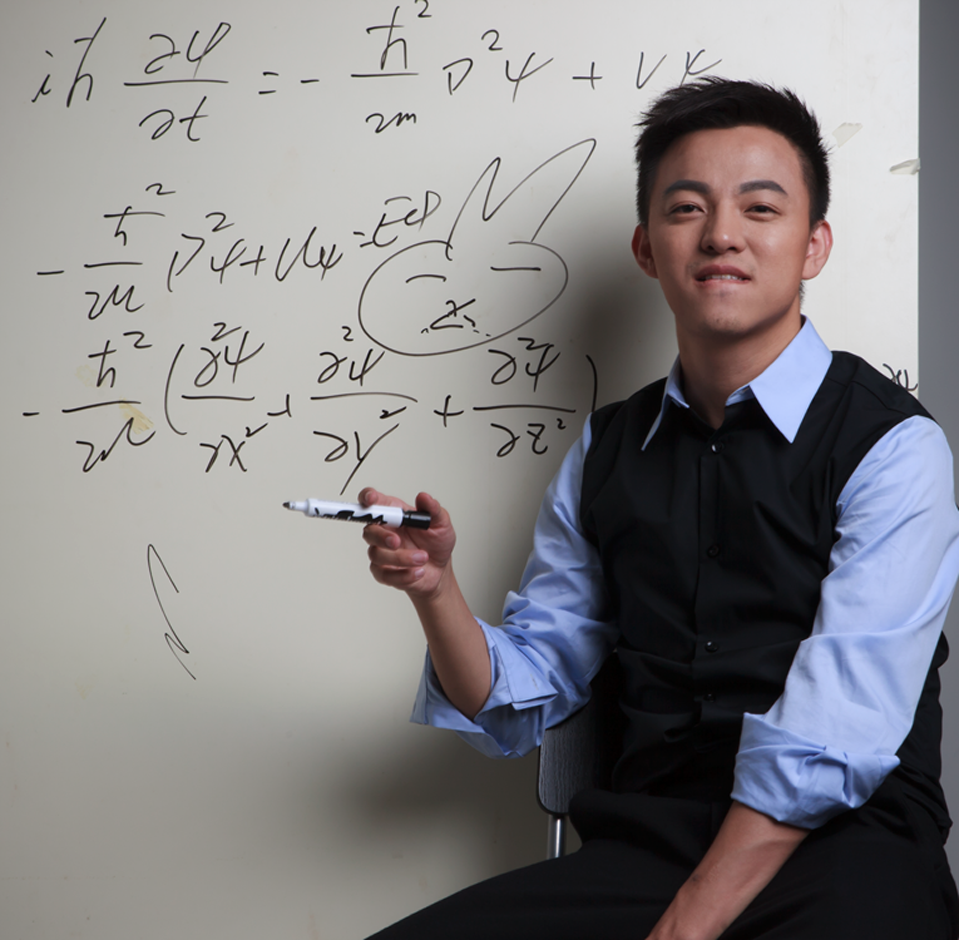 iħ ∂ψ/∂t = - ħ²/2m ∇²ψ + Vψ
- ħ²/2m ∇²ψ + Vψ = Eψ
- ħ²/2m (∂²ψ/∂x² + ∂²ψ/∂y² + ∂²ψ/∂z²)